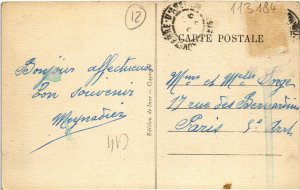 12
113184
CARTE POSTALE
Bonjour affectueux
Bon souvenir
Meynadier
Mme et Melle Sorge
17 rue des Bernardins
Paris 5e Arrt
Edition de luxe